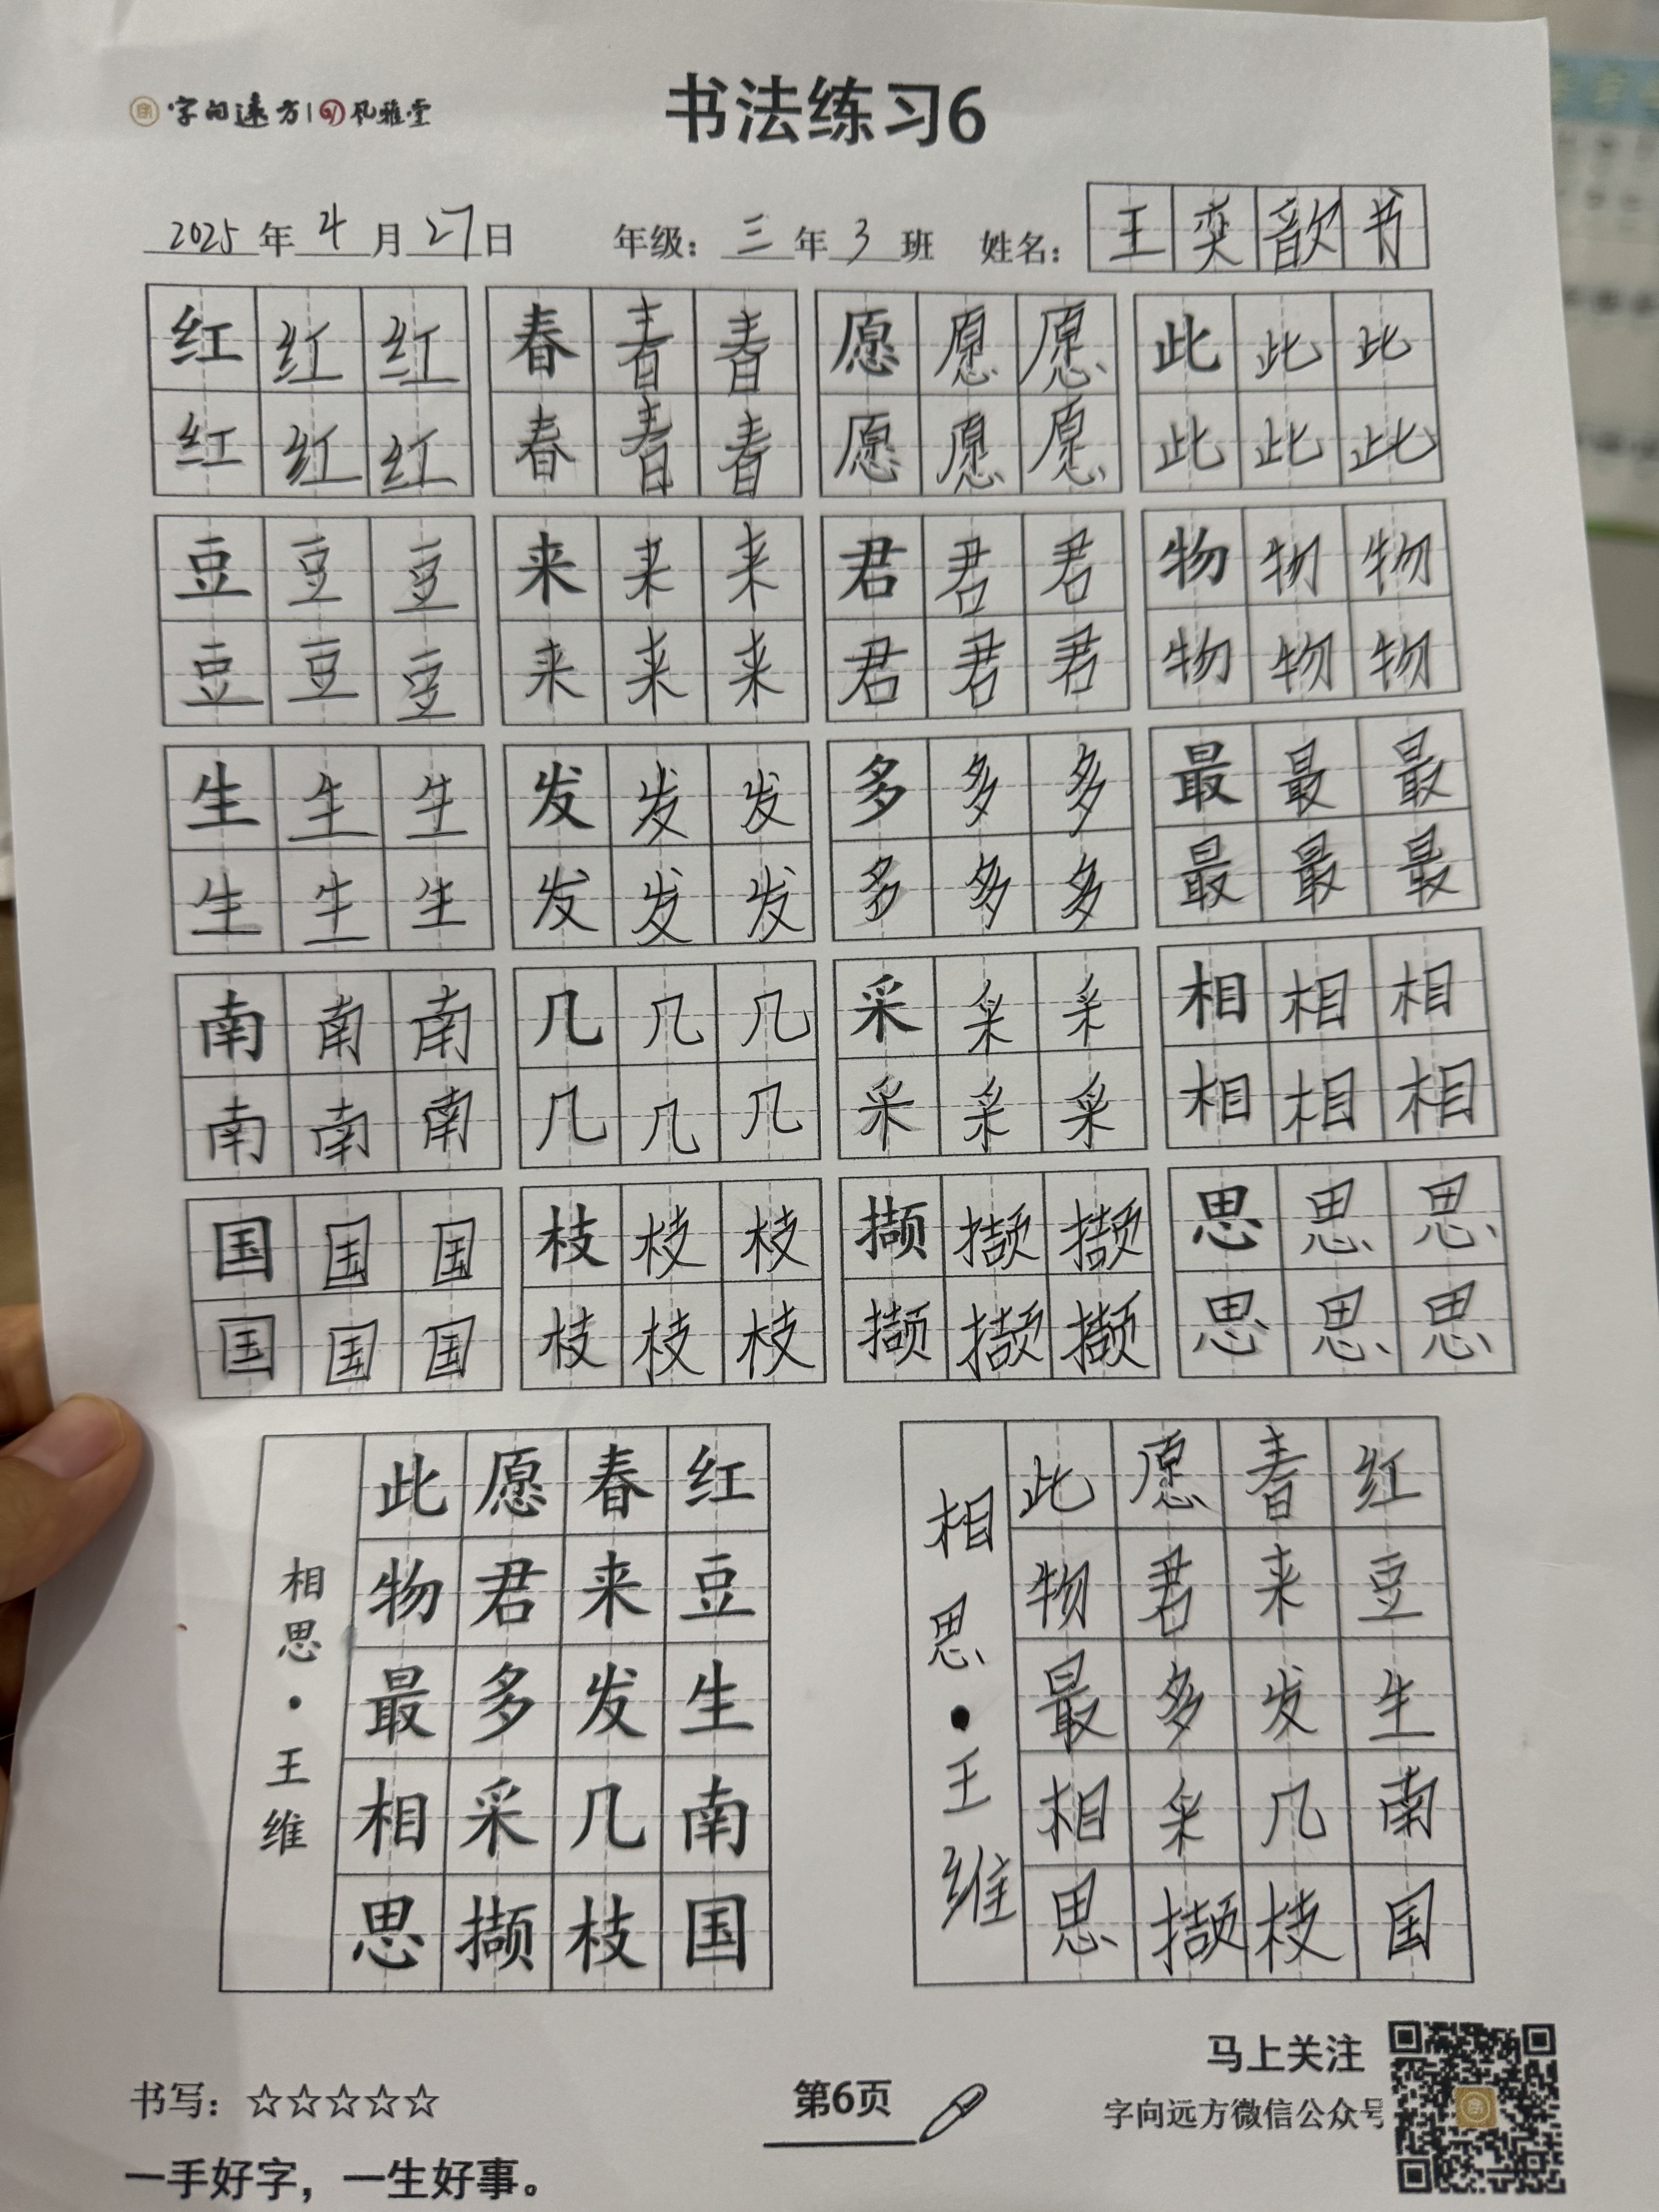 字向远方 风雅堂
书法练习6
2025年4月27日 年级：三年3班 姓名：王奕歆书
红红红 春春春 愿愿愿 此此此
红红红 春春春 愿愿愿 此此此
豆豆豆 来来来 君君君 物物物
豆豆豆 来来来 君君君 物物物
生生生 发发发 多多多 最最最
生生生 发发发 多多多 最最最
南南南 几几几 采采采 相相相
南南南 几几几 采采采 相相相
国国国 枝枝枝 撷撷撷 思思思
国国国 枝枝枝 撷撷撷 思思思
红豆生南国
春来发几枝
愿君多采撷
此物最相思
相思·王维
红豆生南国
春来发几枝
愿君多采撷
此物最相思
相思·王维
书写：☆☆☆☆☆
一手好字，一生好事。
第6页
马上关注
字向远方微信公众号